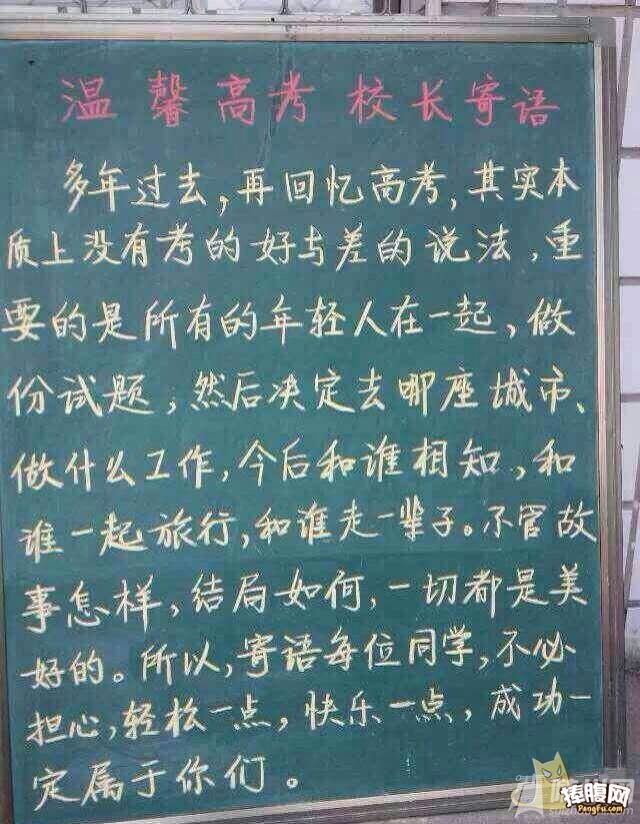 温馨高考 校长寄语
多年过去，再回忆高考，其实本
质上没有考的好与差的说法，重
要的是所有的年轻人在一起，做
份试题，然后决定去哪座城市、
做什么工作，今后和谁相知，和
谁一起旅行，和谁走一辈子。不管故
事怎样，结局如何，一切都是美
好的。所以，寄语每位同学，不必
担心，轻松一点，快乐一点，成功一
定属于你们。
捧腹网
PengFu.com